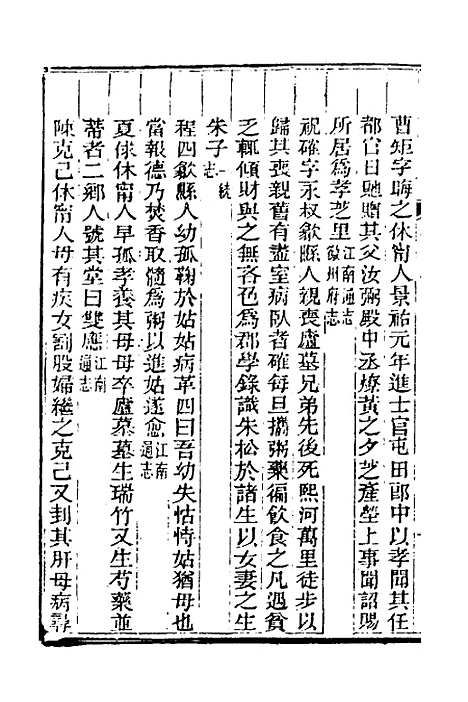 曹矩字誨之休甯人景祐元年進士官屯田郎中以孝聞其任
都官日馳贈其父汝弼殿中丞燎黃之夕芝產塋上事聞詔賜
所居爲孝芝里江南通志徽州府志
祝確字永叔歙縣人親喪廬墓兄弟先後死熙河萬里徒步以
歸其喪親舊有盡室病臥者確每旦攜粥藥徧飲食之凡遇貧
乏輒傾財與之無吝色爲郡學錄識朱松於諸生以女妻之生
朱子一統志
程四歙縣人幼孤鞠於姑姑病革四曰吾幼失怙恃姑猶母也
當報德乃焚香取髓爲粥以進姑遂愈江南通志
夏俅休甯人早孤孝養其母母卒廬墓墓生瑞竹又生芍藥並
蒂者二鄉人號其堂曰雙應江南通志
陳克己休甯人母有疾女割股婦繼之克己又刲其肝母病尋